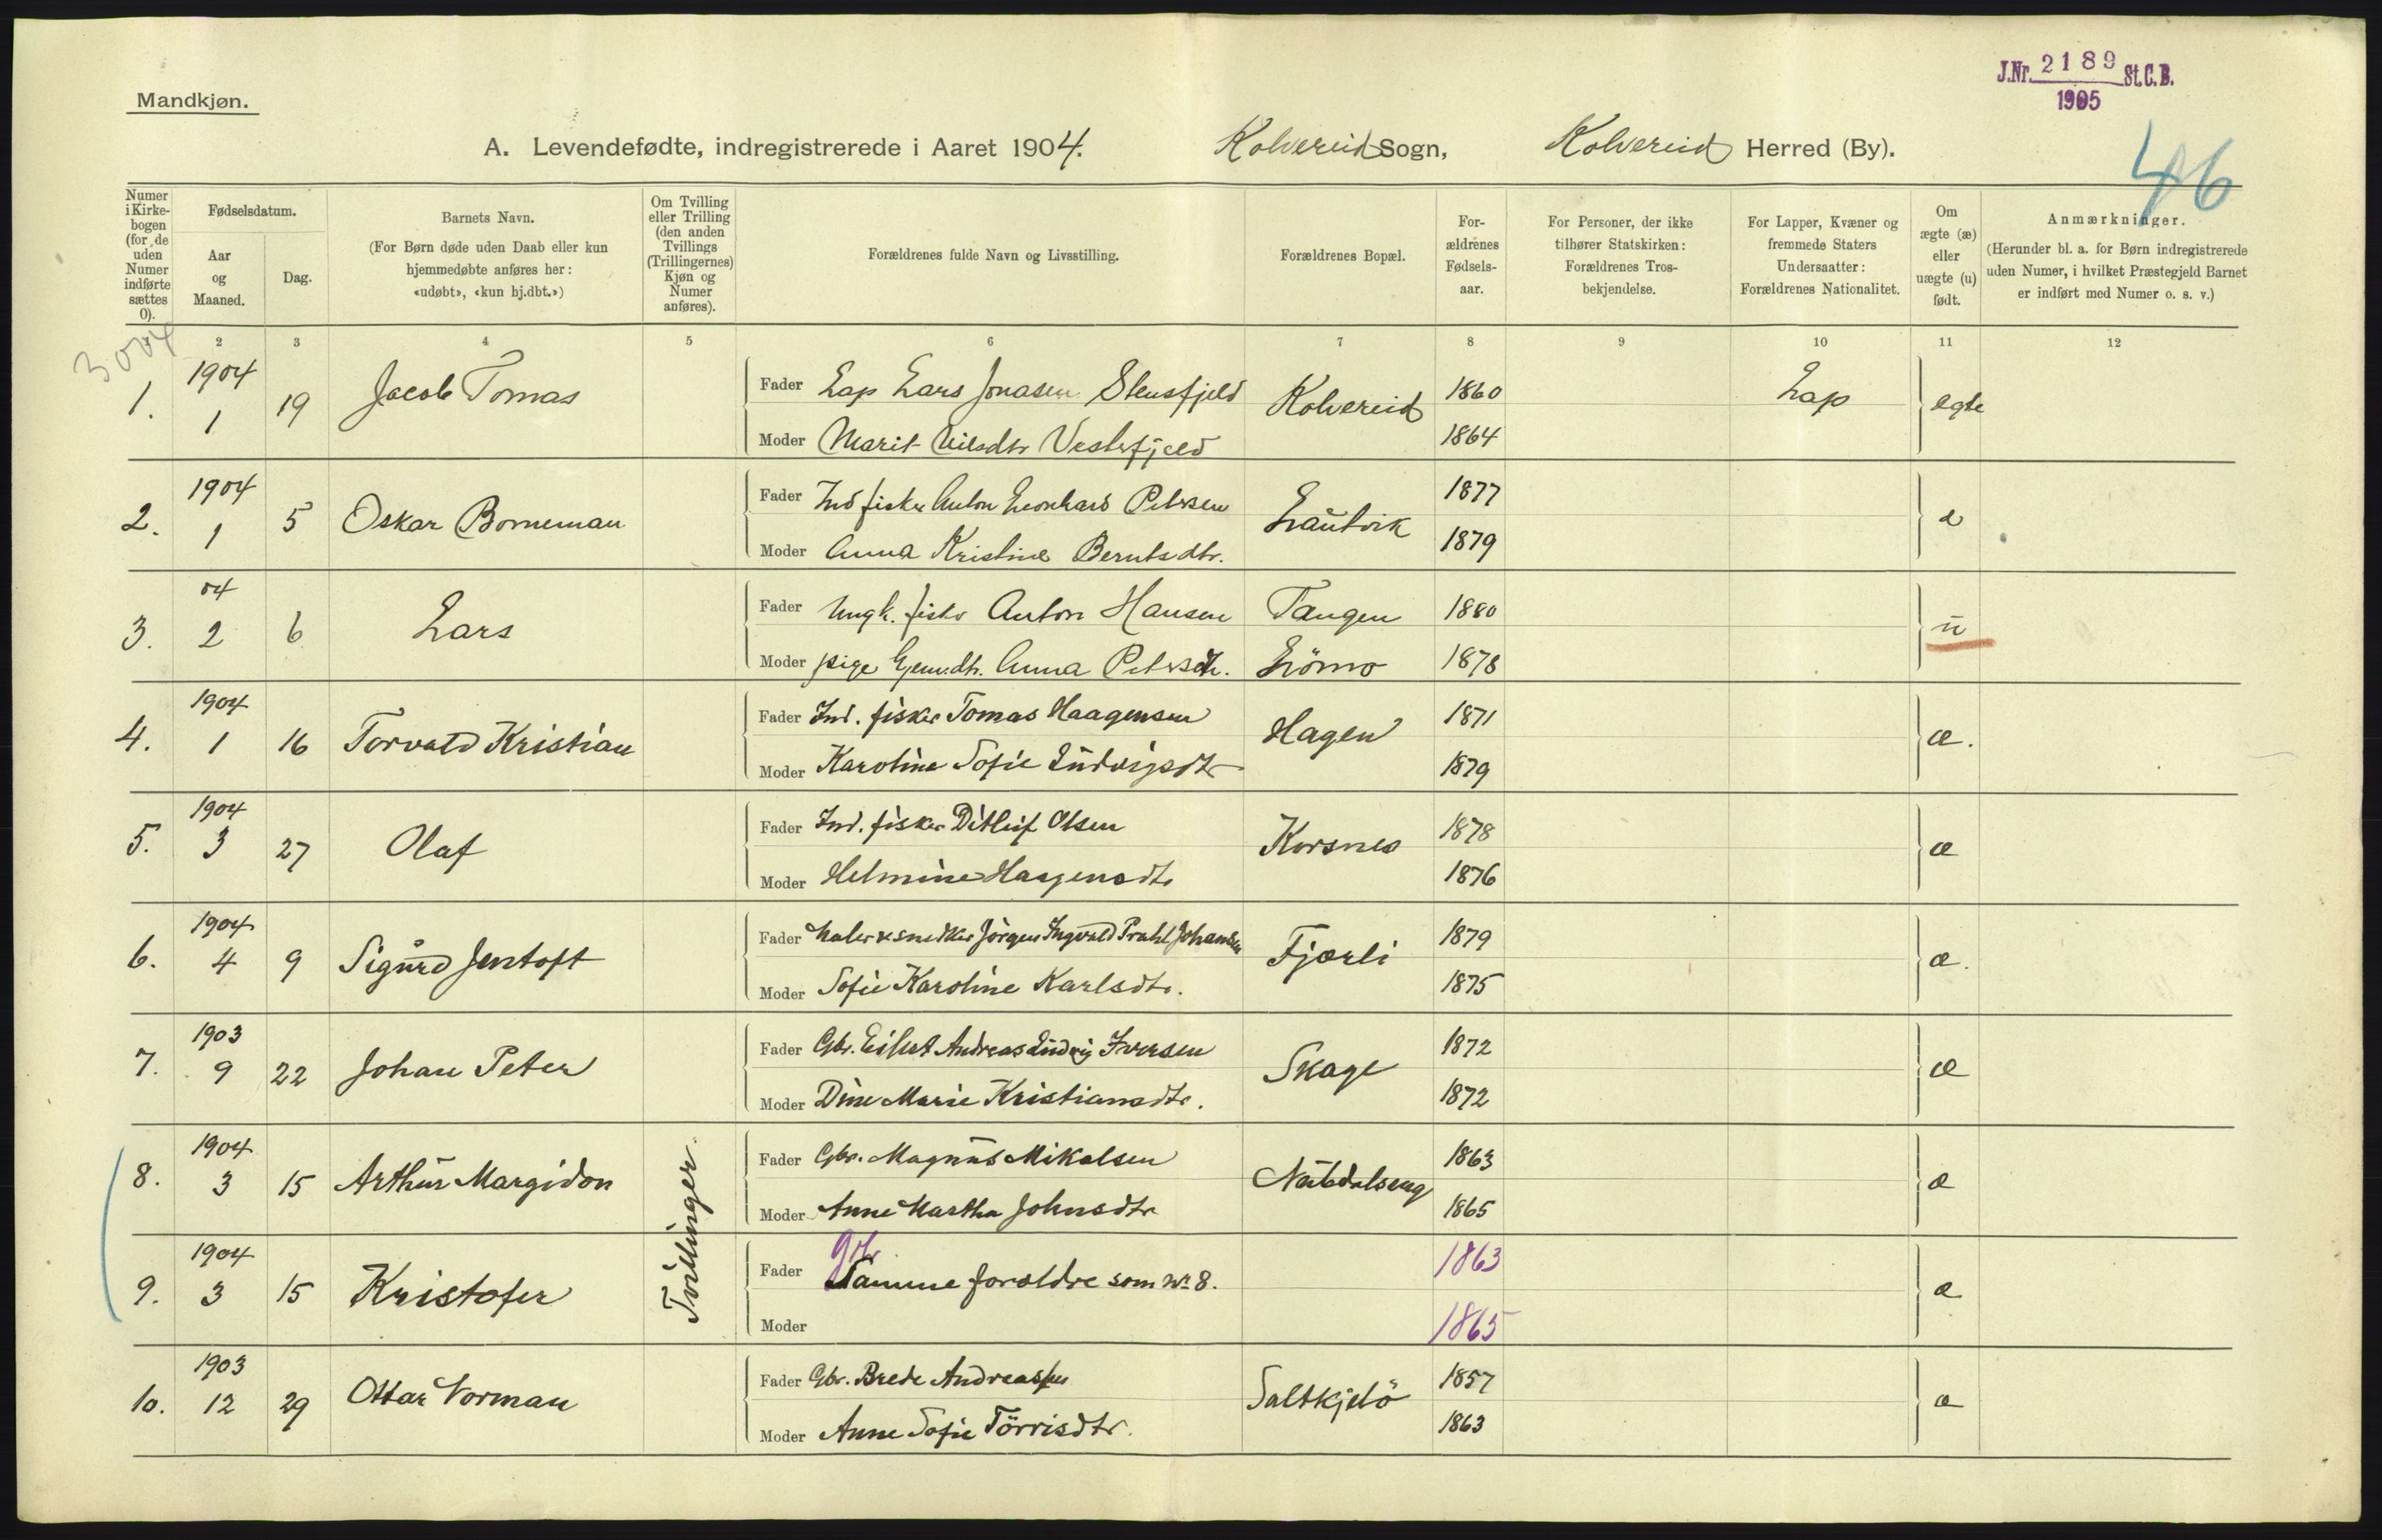 J.Nr. 2189 St.C.B.
1905
46
Mandkjøn.
A. Levendefødte, indregistrerede i Aaret 1904. Kolvereid Sogn, Kolvereid Herred (By).
Numer i Kirkebogen (for de uden Numer indførte sættes 0).
Fødselsdatum.
Aar og Maaned.
Dag.
Barnets Navn.
(For Børn døde uden Daab eller kun hjemmedøbte anføres her: «udøbt», «kun hj.dbt.»)
Om Tvilling eller Trilling (den anden Tvillings (Trillingernes) Kjøn og Numer anføres).
Forældrenes fulde Navn og Livsstilling.
Forældrenes Bopæl.
Forældrenes Fødselsaar.
For Personer, der ikke tilhører Statskirken: Forældrenes Trosbekjendelse.
For Lapper, Kvæner og fremmede Staters Undersaatter: Forældrenes Nationalitet.
Om ægte (æ) eller uægte (u) født.
Anmærkninger.
(Herunder bl. a. for Børn indregistrerede uden Numer, i hvilket Præstegjeld Barnet er indført med Numer o. s. v.)
2 3 4 5 6 7 8 9 10 11 12
3004
1. 1904 1 19 Jacob Tomas Fader Lap Lars Jonasen Stensfjeld Kolvereid 1860 Lap egte
Moder Marit Nilsdtr Vesterfjeld 1864
2. 1904 1 5 Oskar Borneman Fader Ind fisker Anton Leonhard Petersen Lautvik 1877 æ
Moder Anna Kristine Berntsdtr. 1879
3. 04 2 6 Lars Fader Ungk. fisker Anton Hansen Tangen 1880 u
Moder pige Anna Petersdtr. 1878
4. 1904 1 16 Torvald Kristian Fader Ind. fisker Tomas Haagensen Hagen 1871 æ.
Moder Karoline Sofie Ludvigsdtr 1879
5. 1904 3 27 Olaf Fader Ind. fisker Ditlef Olsen Korsnes 1878 æ
Moder Helmine Haagensdtr 1876
6. 1904 4 9 Sigurd Jentoft Fader Maler & snedker Jörgen Ingvald Prahl Johansen Fjærli 1879 æ.
Moder Sofie Karoline Karlsdtr. 1875
7. 1903 9 22 Johan Peter Fader Gbr. Eilert Andreas Ludvig Iversen Skage 1872 æ
Moder Dine Marie Kristiansdtr. 1872
8. 1904 3 15 Arthur Margidon Tvillinger. Fader Gbr. Magnus Mikalsen 1863 æ
Moder Anne Martha Johnsdtr 1865
9. 1904 3 15 Kristofer Fader Gbr. Samme forældre som No 8. 1863 æ
Moder 1865
10. 1903 12 29 Ottar Norman Fader Gbr. Brede Andreassen Saltkjelö 1857 æ
Moder Anne Sofie Törrisdtr. 1863